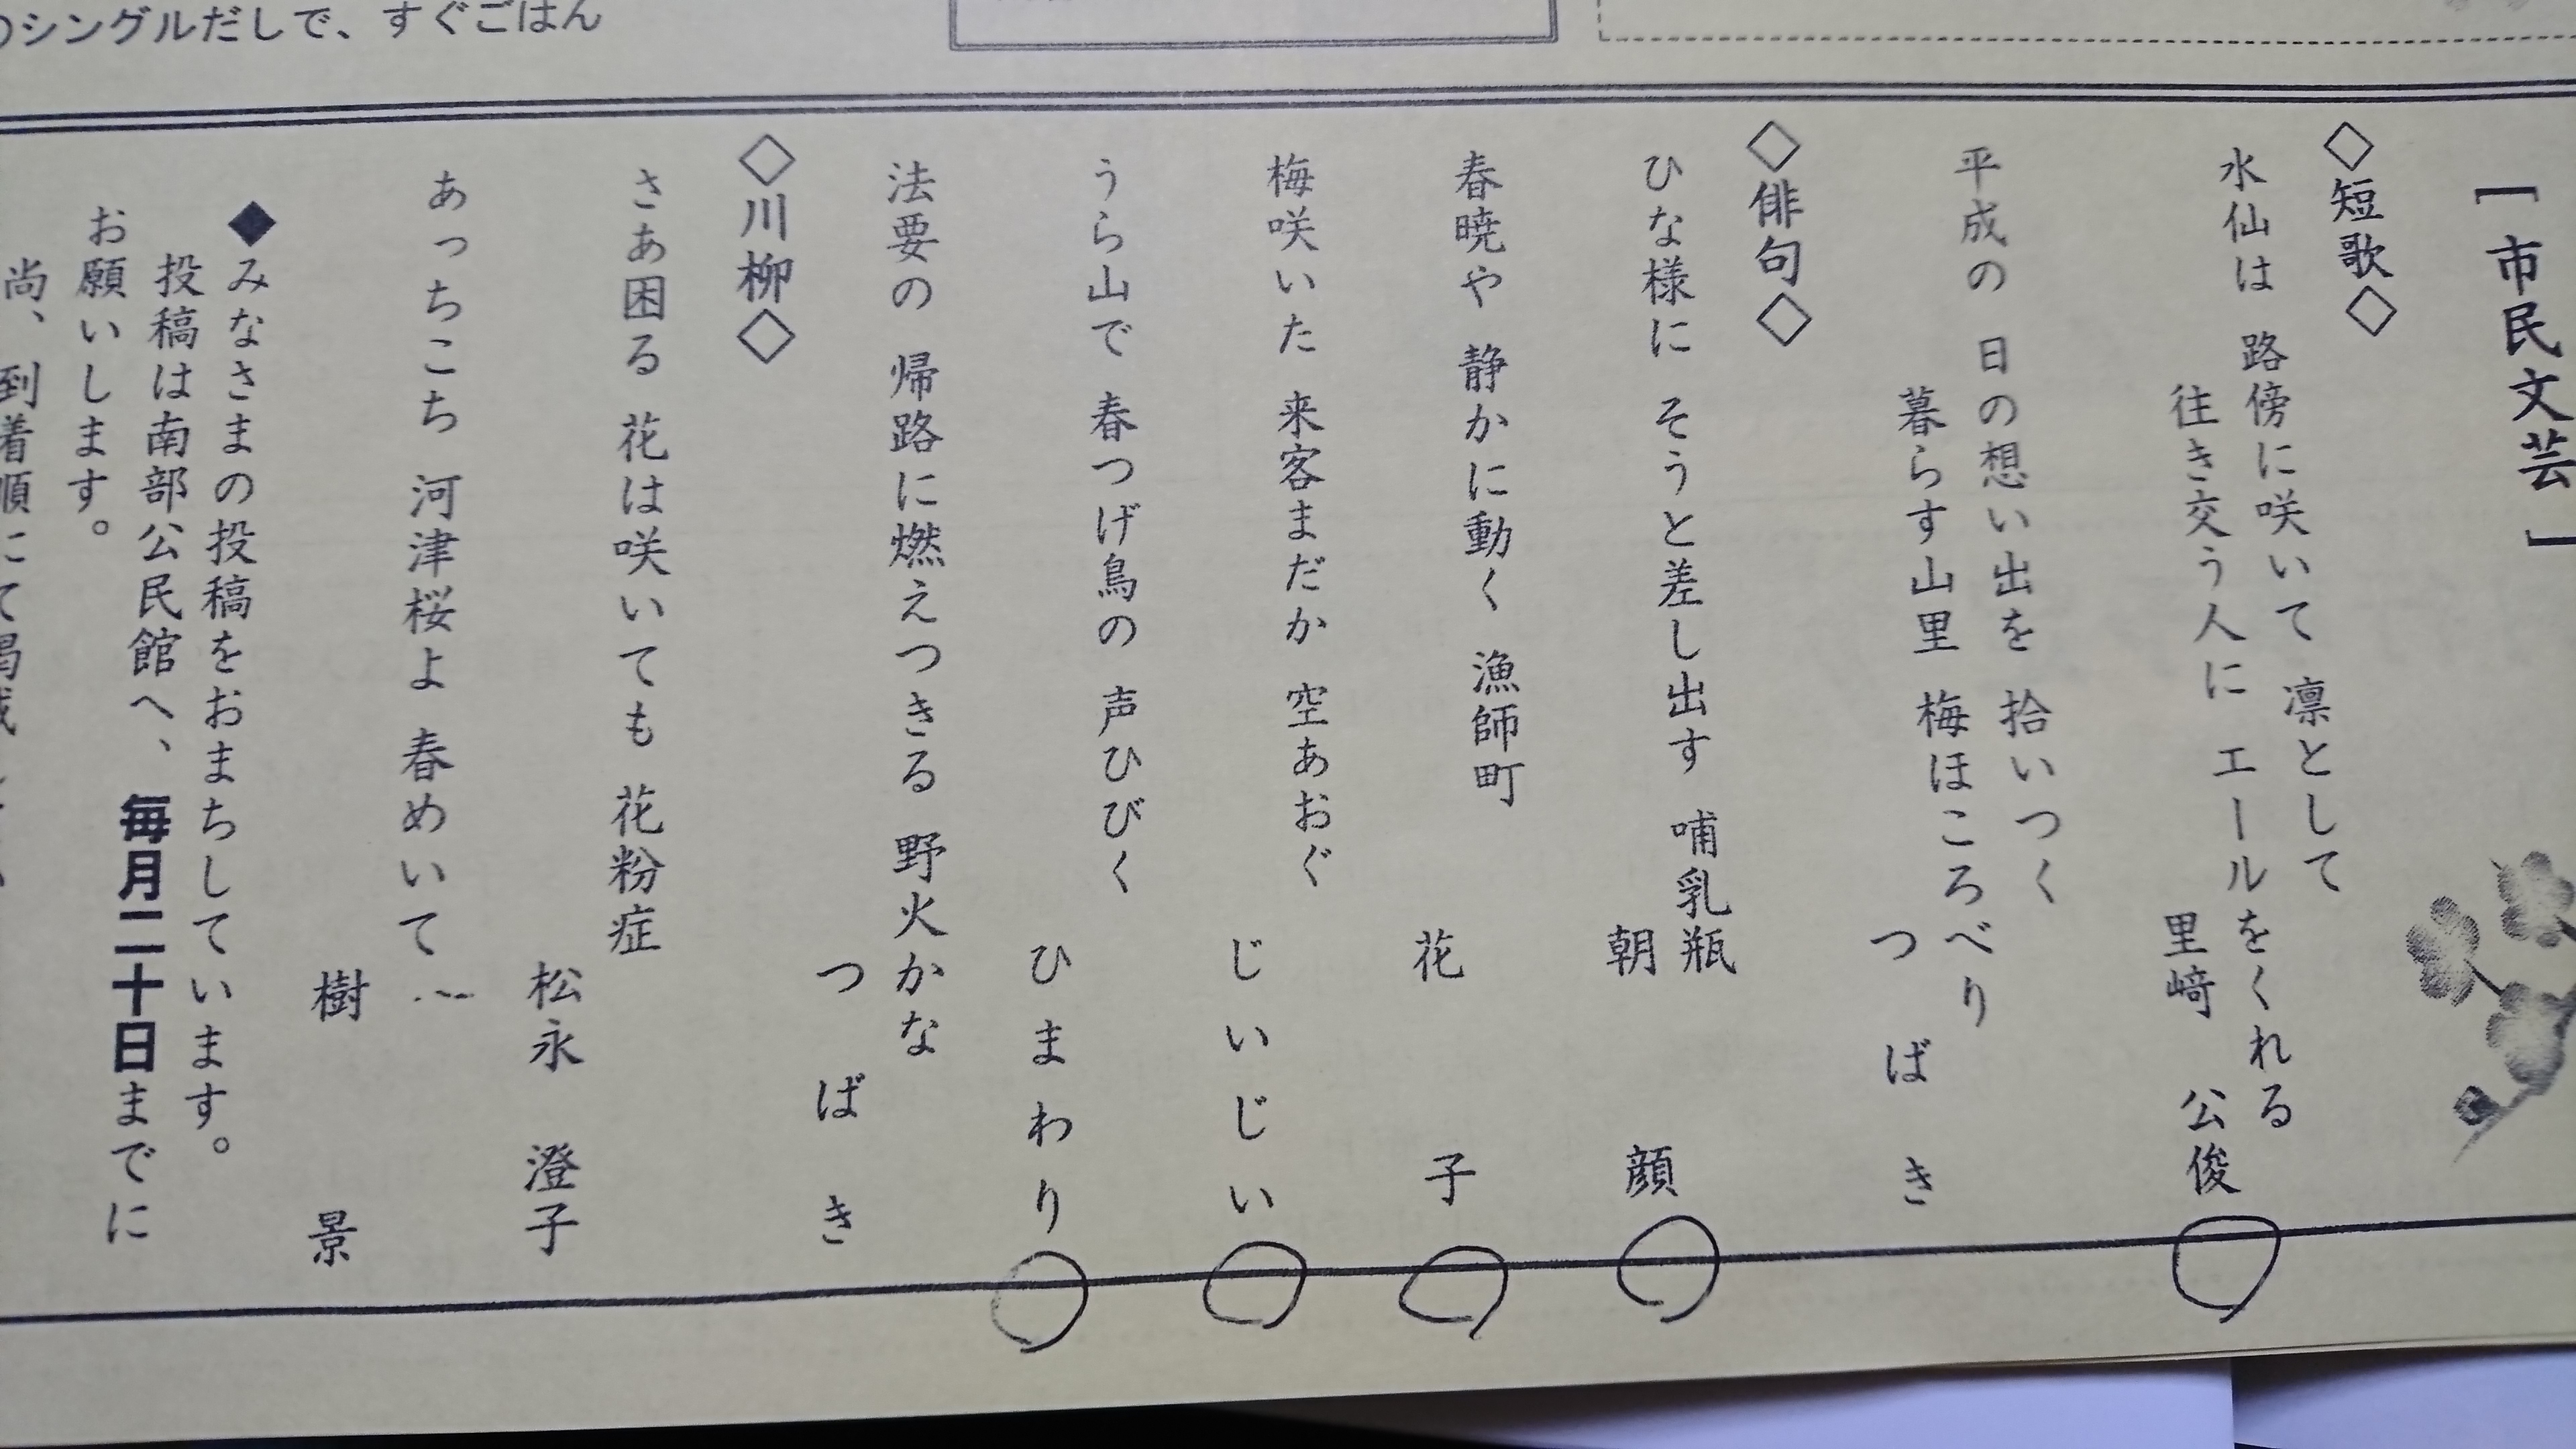 のシングルだしで、すぐごはん
［市民文芸］
◇短歌◇
水仙は 路傍に咲いて 凛として
往き交う人に エールをくれる
里﨑 公俊
平成の 日の想い出を 拾いつく
暮らす山里 梅ほころべり
つばき
◇俳句◇
ひな様に そうと差し出す 哺乳瓶
朝顔
春暁や 静かに動く 漁師町
花子
梅咲いた 来客まだか 空あおぐ
じいじい
うら山で 春つげ鳥の 声ひびく
ひまわり
法要の 帰路に燃えつきる 野火かな
つばき
◇川柳◇
さあ困る 花は咲いても 花粉症
松永 澄子
あっちこち 河津桜よ 春めいて
樹景
◆みなさまの投稿をおまちしています。
投稿は南部公民館へ、毎月二十日までに
お願いします。
尚、到着順にて掲載